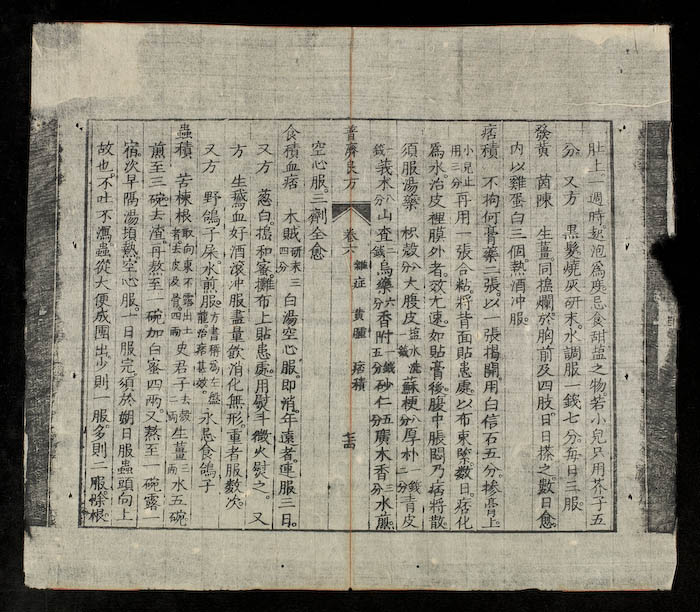 肚上一週時起泡為度忌食甜鹽之物若小兒只用芥子五
分 又方 黑髮燒灰研末水調服一錢七分每日三服
發黃 茵陳 生薑同搗爛於胸前及四肢日日擦之數日愈
內以雞蛋白三個熱酒冲服
痞積 不拘何膏藥二張以一張揭開用白信石五分摻膏上
小兒止用三分再用一張合粘將背面貼患處以布束緊數日痞化
為水治皮裡膜外者效尤速如貼膏後腹中脹悶乃痞將散
須服湯藥 枳殼八分大腹皮鹽水洗一錢蘇梗八分厚朴一錢青皮
錢一莪朮八分山查錢烏藥六分香附一錢五分砂仁五分廣木香三分水煎
普濟良方 卷六 雜症 黃腫 痞積
空心服三劑全愈
食積血痞 木賊研末三四分白湯空心服即消年遠者連服三日
又方 葱白搗和蜜攤布上貼患處用熨斗微火熨之 又
方 生鵞血好酒滾冲服盡量飲消化無形重者服數次
又方 野鴿子屎水煎服方書稱為左盤龍治痞甚效永忌食鴿子
蟲積 苦楝根取向東不露出土者去皮及骨四兩史君子去殼二兩生薑三兩水五碗
煎至三碗去渣再熬至一碗加白蜜四兩又熬至一碗露一
宿次早隔湯頓熱空心服一日服完須於朔日服蟲頭向上
故也不吐不瀉蟲從大便成團出少則一服多則二服除根